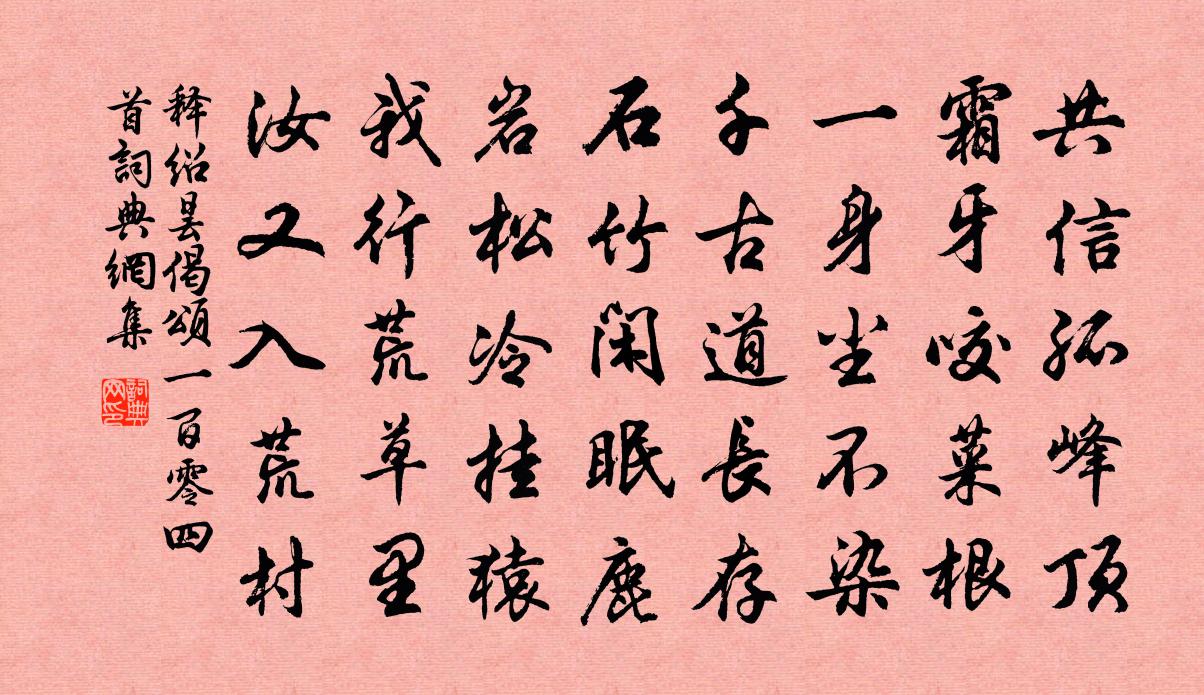 共信孤峰顶
霜牙咬菜根
一身尘不染
千古道長存
石竹闲眠鹿
岩松冷挂猿
我行荒草里
汝又入荒村
释绍昙偈頌一百零四
首詞典網集
詞典网印